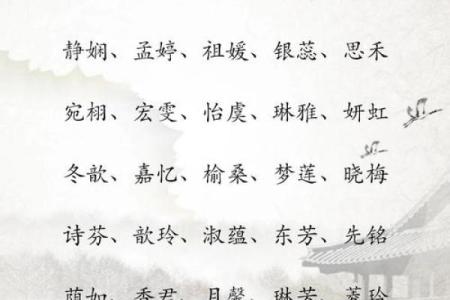 静娴、孟婷、祖媛、银蕊、思禾
宛栩、宏雯、怡虞、琳雅、妍虹
冬歆、嘉忆、榆桑、梦莲、晓梅
诗芬、歆玲、淑蕴、东芳、先铭
荫如、秀君、月馨、琳芳、菱玲